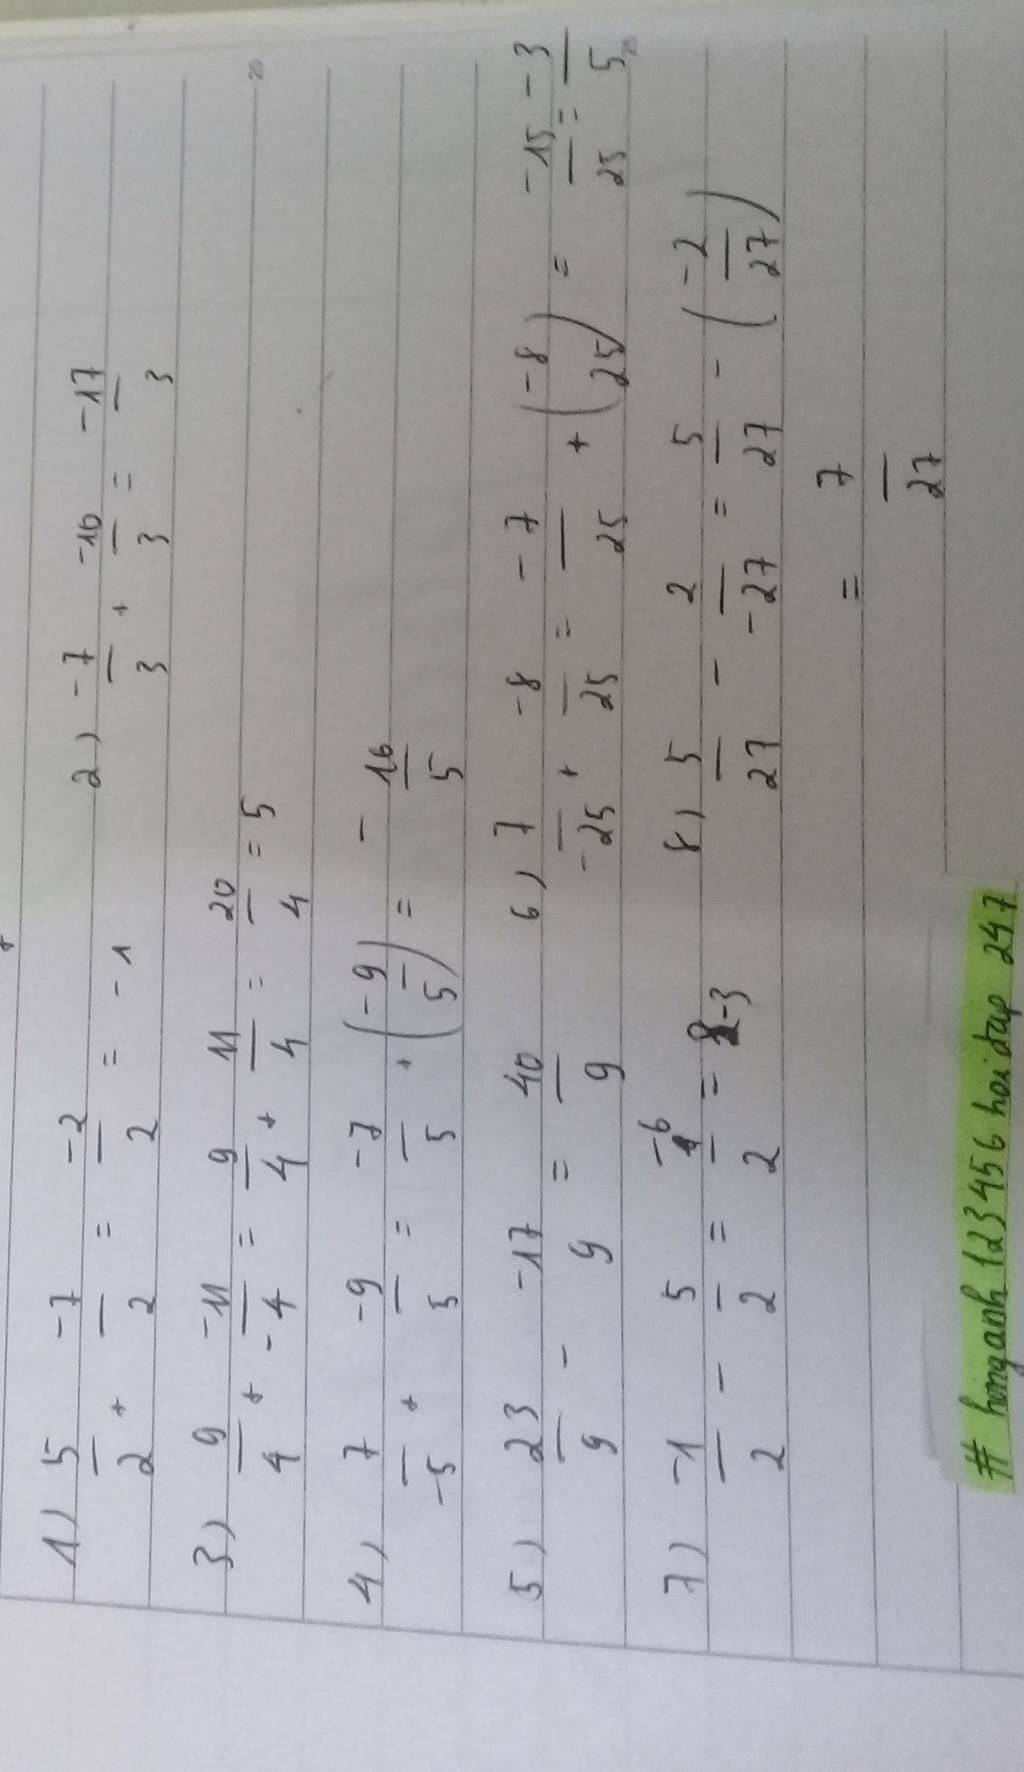 1) 5/2 + -7/2 = -2/2 = -1 2) -7/3 + -10/3 = -17/3
3) 9/4 + -11/-4 = 9/4 + 11/4 = 20/4 = 5
4) 7/-5 + -9/5 = -7/5 + (-9/5) = - 16/5
5) 23/9 - -17/9 = 40/9 6) 7/-25 + -8/25 = -7/25 + (-8/25) = -15/25 = -3/5
7) -1/2 - 5/2 = -6/2 = -3 8) 5/27 - 2/-27 = 5/27 - (-2/27)
= 7/27
# honganh123456hoidap 247